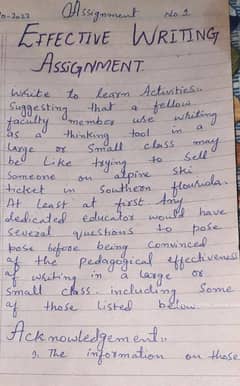 -2023 Assignment No. 1
EFFECTIVE WRITING
ASSIGNMENT.
Write to learn Activities..
Suggesting that a fellow
faculty member use writing
as a thinking tool in a
large or Small class may
be Like trying to Sell
Someone an alpine ski
ticket in Southern flourida.
At least at first Any
dedicated educator would have
several questions to pose
pose before being convinced
of the pedagogical effectiveness
of writing in a large or
small class. including Some
of those listed below.
Acknowledgement..
The information on those